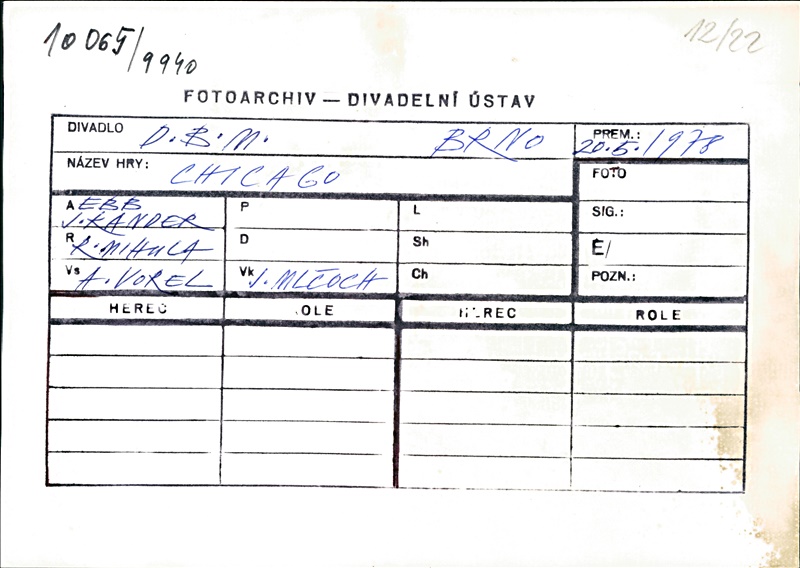 10 065/9940
12/22
FOTOARCHIV — DIVADELNÍ ÚSTAV
DIVADLO D.B.M. BRNO PREM.: 20.5.1978
NÁZEV HRY: CHICAGO FOTO
A EBB P L SIG.:
J. KANDER
R R. MIHULA D Sh É/
Vs A. VOREL Vk J. MLČOCH Ch POZN.:
HEREC OLE HEREC ROLE